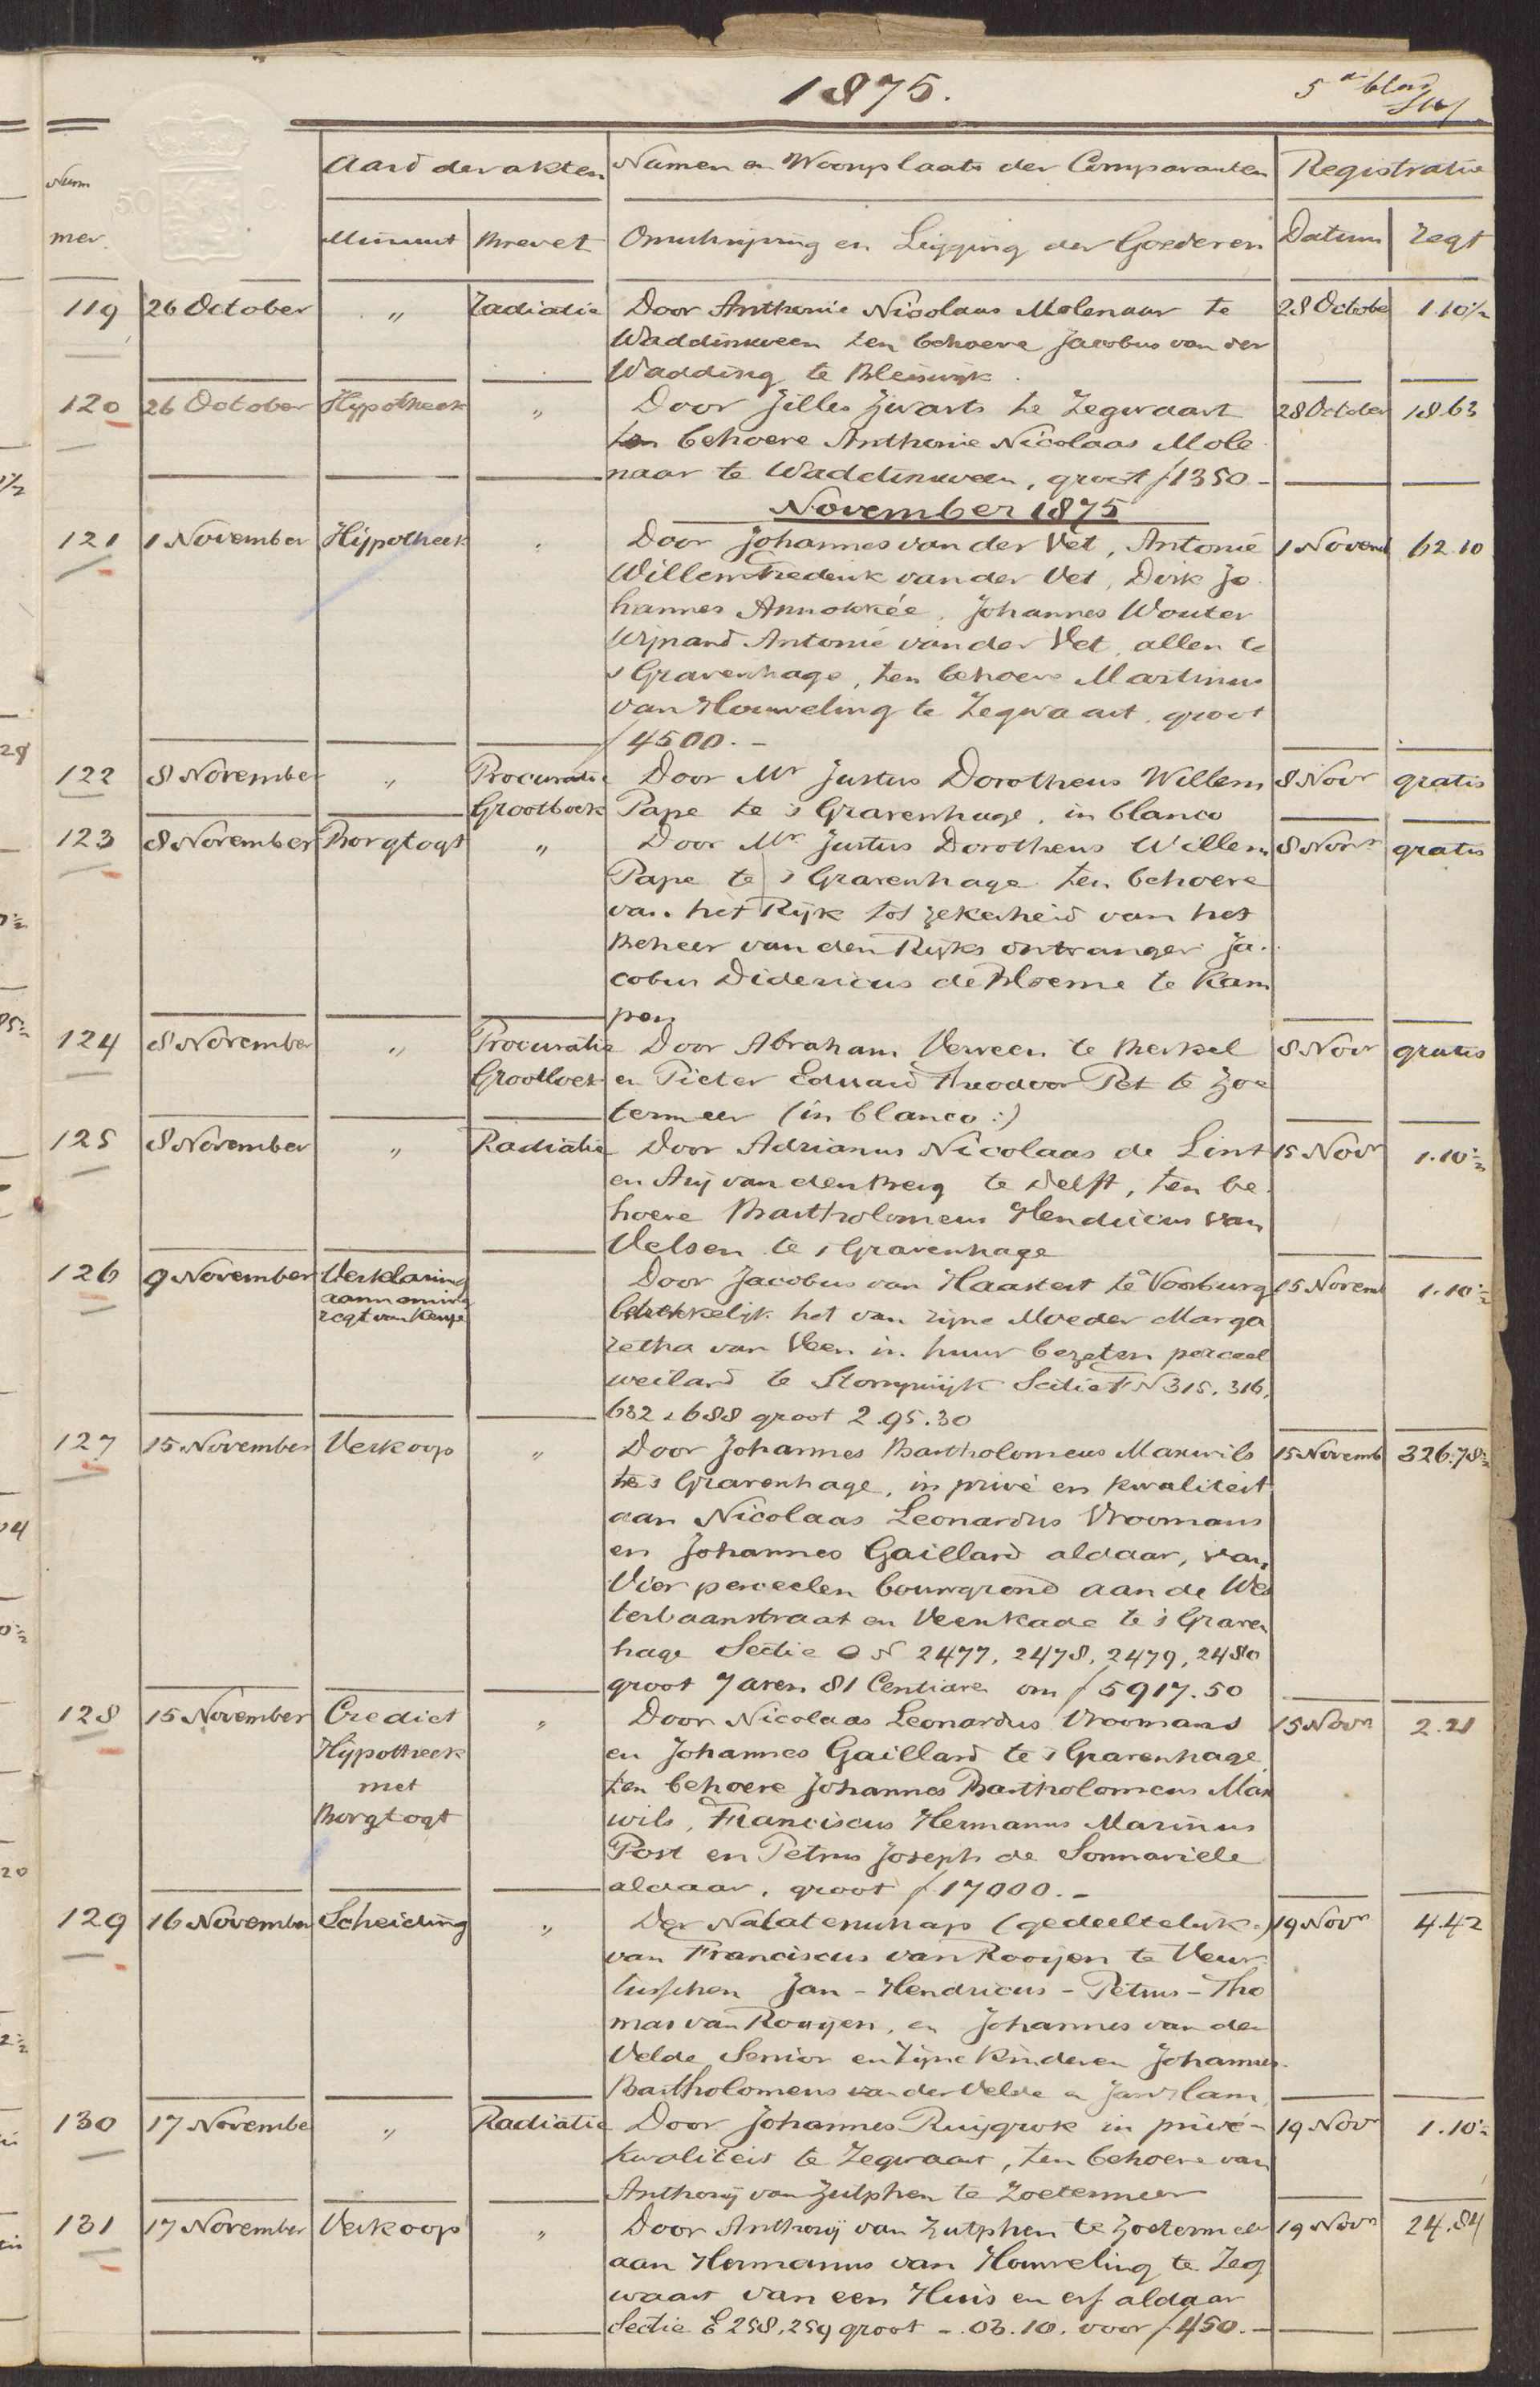 1875.
5e blad
Num
mer.
Aard der akten
Namen en Woonplaats der Comparanten
Registratie
Minuut
Brevet
Omschrijving en Ligging der Goederen
Datum
regt
119 26 October " Radiatie Door Anthonie Nicolaas Molenaar te 28 Octobe 1.10½
Waddinxveen ten behoeve Jacobus van der
Wadding te Bleiswijk
120 26 October Hypotheek " Door Jilles Zwarts te Zegwaart 28 October 18.63
ten behoeve Anthonie Nicolaas Mole
naar te Waddinxveen, groot ƒ1350.-
November 1875
121 1 November Hypotheek " Door Johannes van der Vet, Antonie 1 Novemb 62.10
Willem Frederik van der Vet, Dirk Jo
hannes Annokkée, Johannes Wouter
Wijnand Antonie van der Vet, allen te
s Gravenhage, ten behoeve Martinus
van Houweling te Zegwaart, groot
ƒ4500.-
122 8 November " Procuratie Door Mr Justus Dorotheus Willem 8 Novr gratis
Grootboek Pape te 's Gravenhage, in blanco
123 8 November Borgtogt " Door Mr Justus Dorotheus Willem 8 Novr gratis
Pape te 's Gravenhage ten behoeve
van het Rijk tot zekerheid van het
Beheer van den Rijks ontvanger Ja-
cobus Didericus de Bloeme te Kam
pen
124 8 November " Procuratie Door Abraham Verveen te Berkel 8 Novr gratis
Grootboek en Pieter Eduard Theodoor Pet te Zoe
termeer (in blanco:)
125 8 November " Radiatie Door Adrianus Nicolaas de Lint 15 Novr 1.10½
en Arij van den Berg te Delft, ten be
hoeve Bartholomeus Hendricus van
Velsen te s Gravenhage
126 9 November Verklaring Door Jacobus van Haastert te Voorburg 15 Novemb 1.10½
aanneming betrekkelijk het van zijne Moeder Marga
regt van keuze retha van Veen in huur bezeten perceel
weiland te Stompwijk Sectie F N 315, 316,
632, 688 groot 2.95.30
127 15 November Verkoop " Door Johannes Bartholomeus Manwils 15 Novemb 326.78½
te s Gravenhage, in privé en kwaliteit
aan Nicolaas Leonardus Vroomans
en Johannes Gaillard aldaar, van
Vier perceelen bouwgrond aan de Wes
terbaanstraat en Veenkade te 's Graven
hage Sectie O N 2477, 2478, 2479, 2480
groot 7 aren 81 Centiaren om ƒ5917.50
128 15 November Crediet " Door Nicolaas Leonardus Vroomans 15 Novr 2.21
Hypotheek en Johannes Gaillard te s Gravenhage,
met ten behoeve Johannes Bartholomeus Man
Borgtogt wils, Franciscus Hermanus Marinus
Post en Petrus Joseph de Sonnaville
aldaar, groot ƒ17000.-
129 16 November Scheiding " Der Nalatenschap (gedeeltelijk:) 19 Novr 4.42
van Franciscus van Rooijen te Veur
tusschen Jan - Hendricus - Petrus - Tho
mas van Rooijen, en Johannes van der
Velde Senior en zijne kinderen Johannes-
Bartholomeus van der Velde
130 17 Novembe " Radiatie Door Johannes Ruijgrok in privé- 19 Novr 1.10½
kwaliteit te Zegwaart, ten behoeve van
Anthonij van Zutphen te Zoetermeer
131 17 November Verkoop " Door Anthonij van Zutphen te Zoetermeer 19 Novr 24.84
aan Hermanus van Houweling te Zeg
waart van een Huis en erf aldaar
Sectie E 258, 259 groot -.03.10. voor ƒ450.-